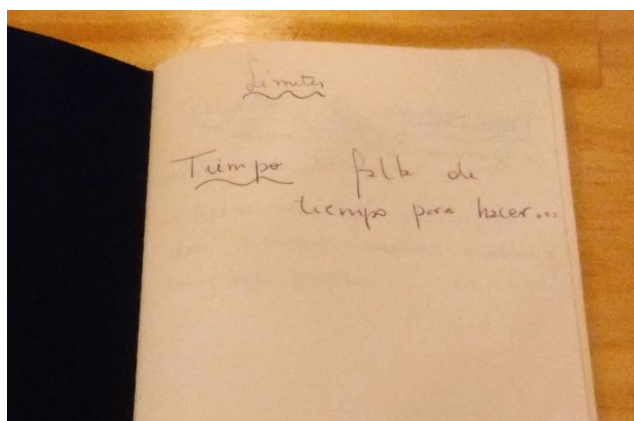 Limites
Tiempo falta de
tiempo para hacer...